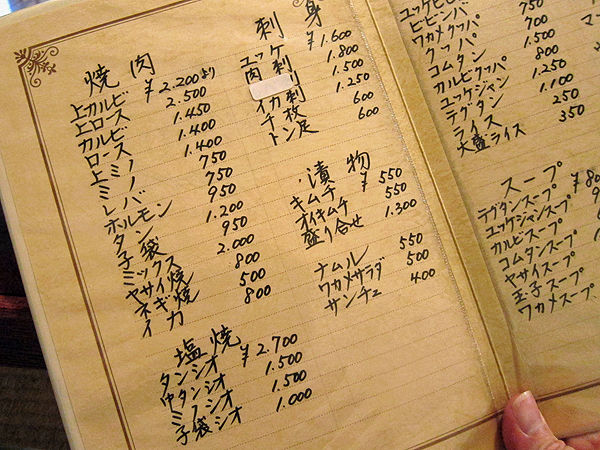 焼肉
上カルビ ¥2.200より
上ロース 2.500
カルビ 1.450
ロース 1.400
上ミノ 1.400
ミノ 750
レバー 750
ホルモン 950
タン 1.200
子袋 950
ミックス 2.000
ヤサイ焼 800
ネギ焼 500
イカ 800
塩焼
タンシオ ¥2.700
中タンシオ 1.500
ミノシオ 1.500
子袋シオ 1.000
刺身
ユッケ ¥1.600
肉刺 1.800
刺 1.500
イカ刺 1.250
千枚 600
トン足 600
漬物
キムチ ¥550
オイキムチ 550
盛り合せ 1.300
ナムル 550
ワカメサラダ 500
サンチュ 400
ビビンバ
ワカメクッパ 750
クッパ 700
コムタン 1.500
カルビクッパ 800
ユッケジャン 1.250
テグタン 1.100
ライス 250
大盛ライス 350
スープ
テグタンスープ
ユッケジャンスープ
カルビスープ
コムタンスープ
ヤサイスープ
玉子スープ
ワカメスープ